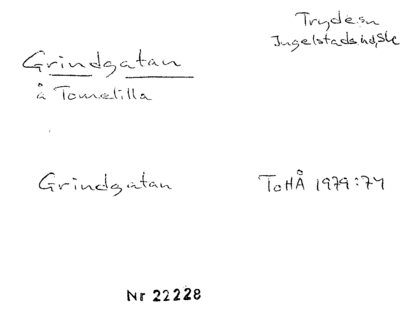 Tryde sn
Ingelstads hd, Sk
Grindgatan
å Tomelilla
Grindgatan ToHÅ 1979:74
Nr 22228